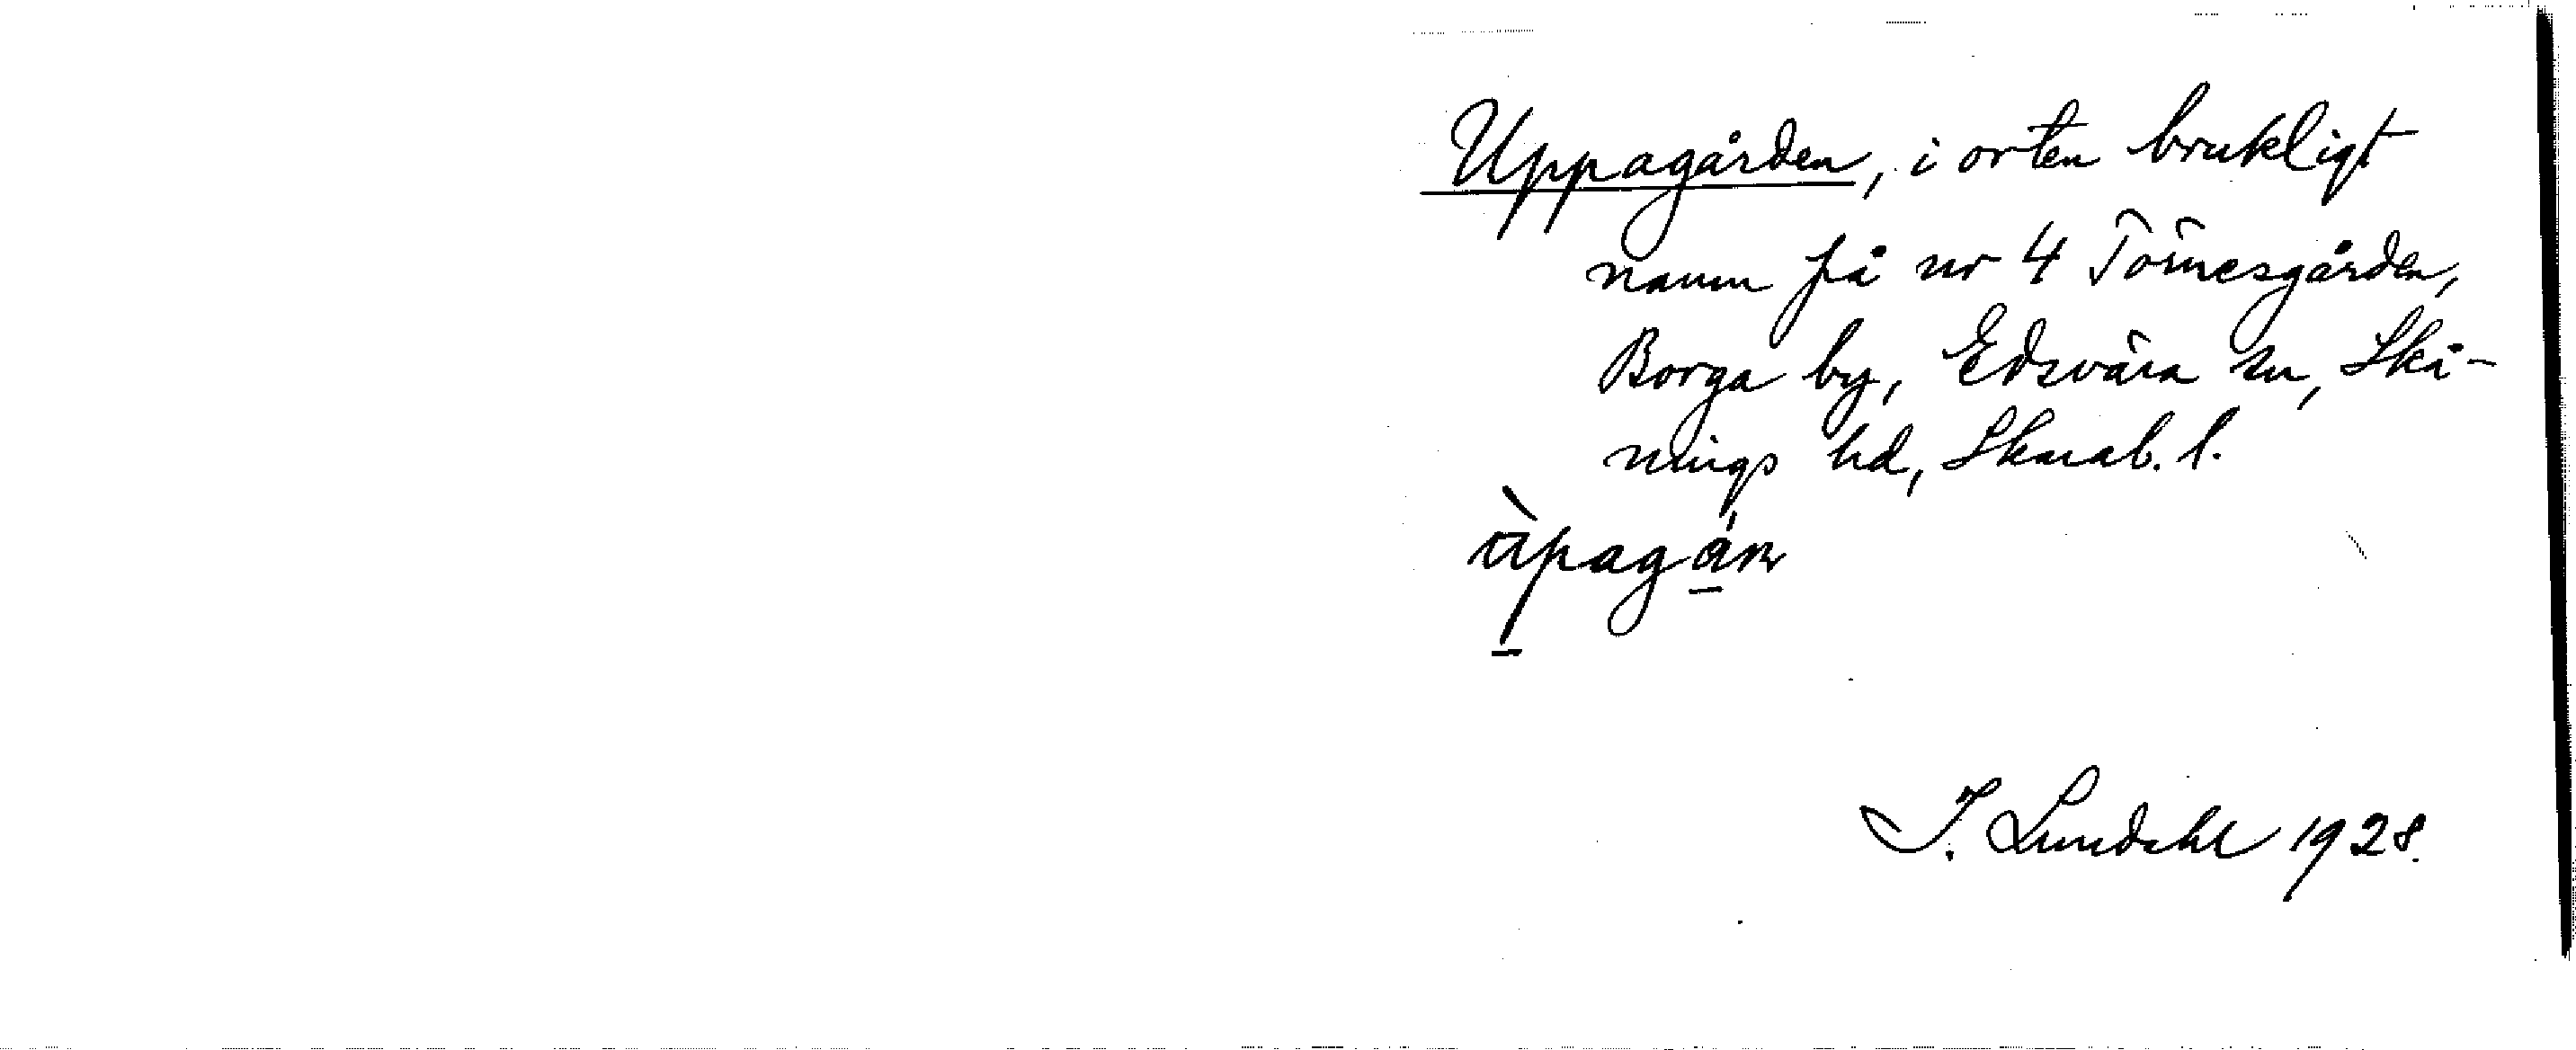 Uppagården, i orten brukligt
namn på nr 4 Törnesgården,
Borga by, Edsvära sn, Skå-
nings hd, Skarab. l.
I. Lundahl 1928.